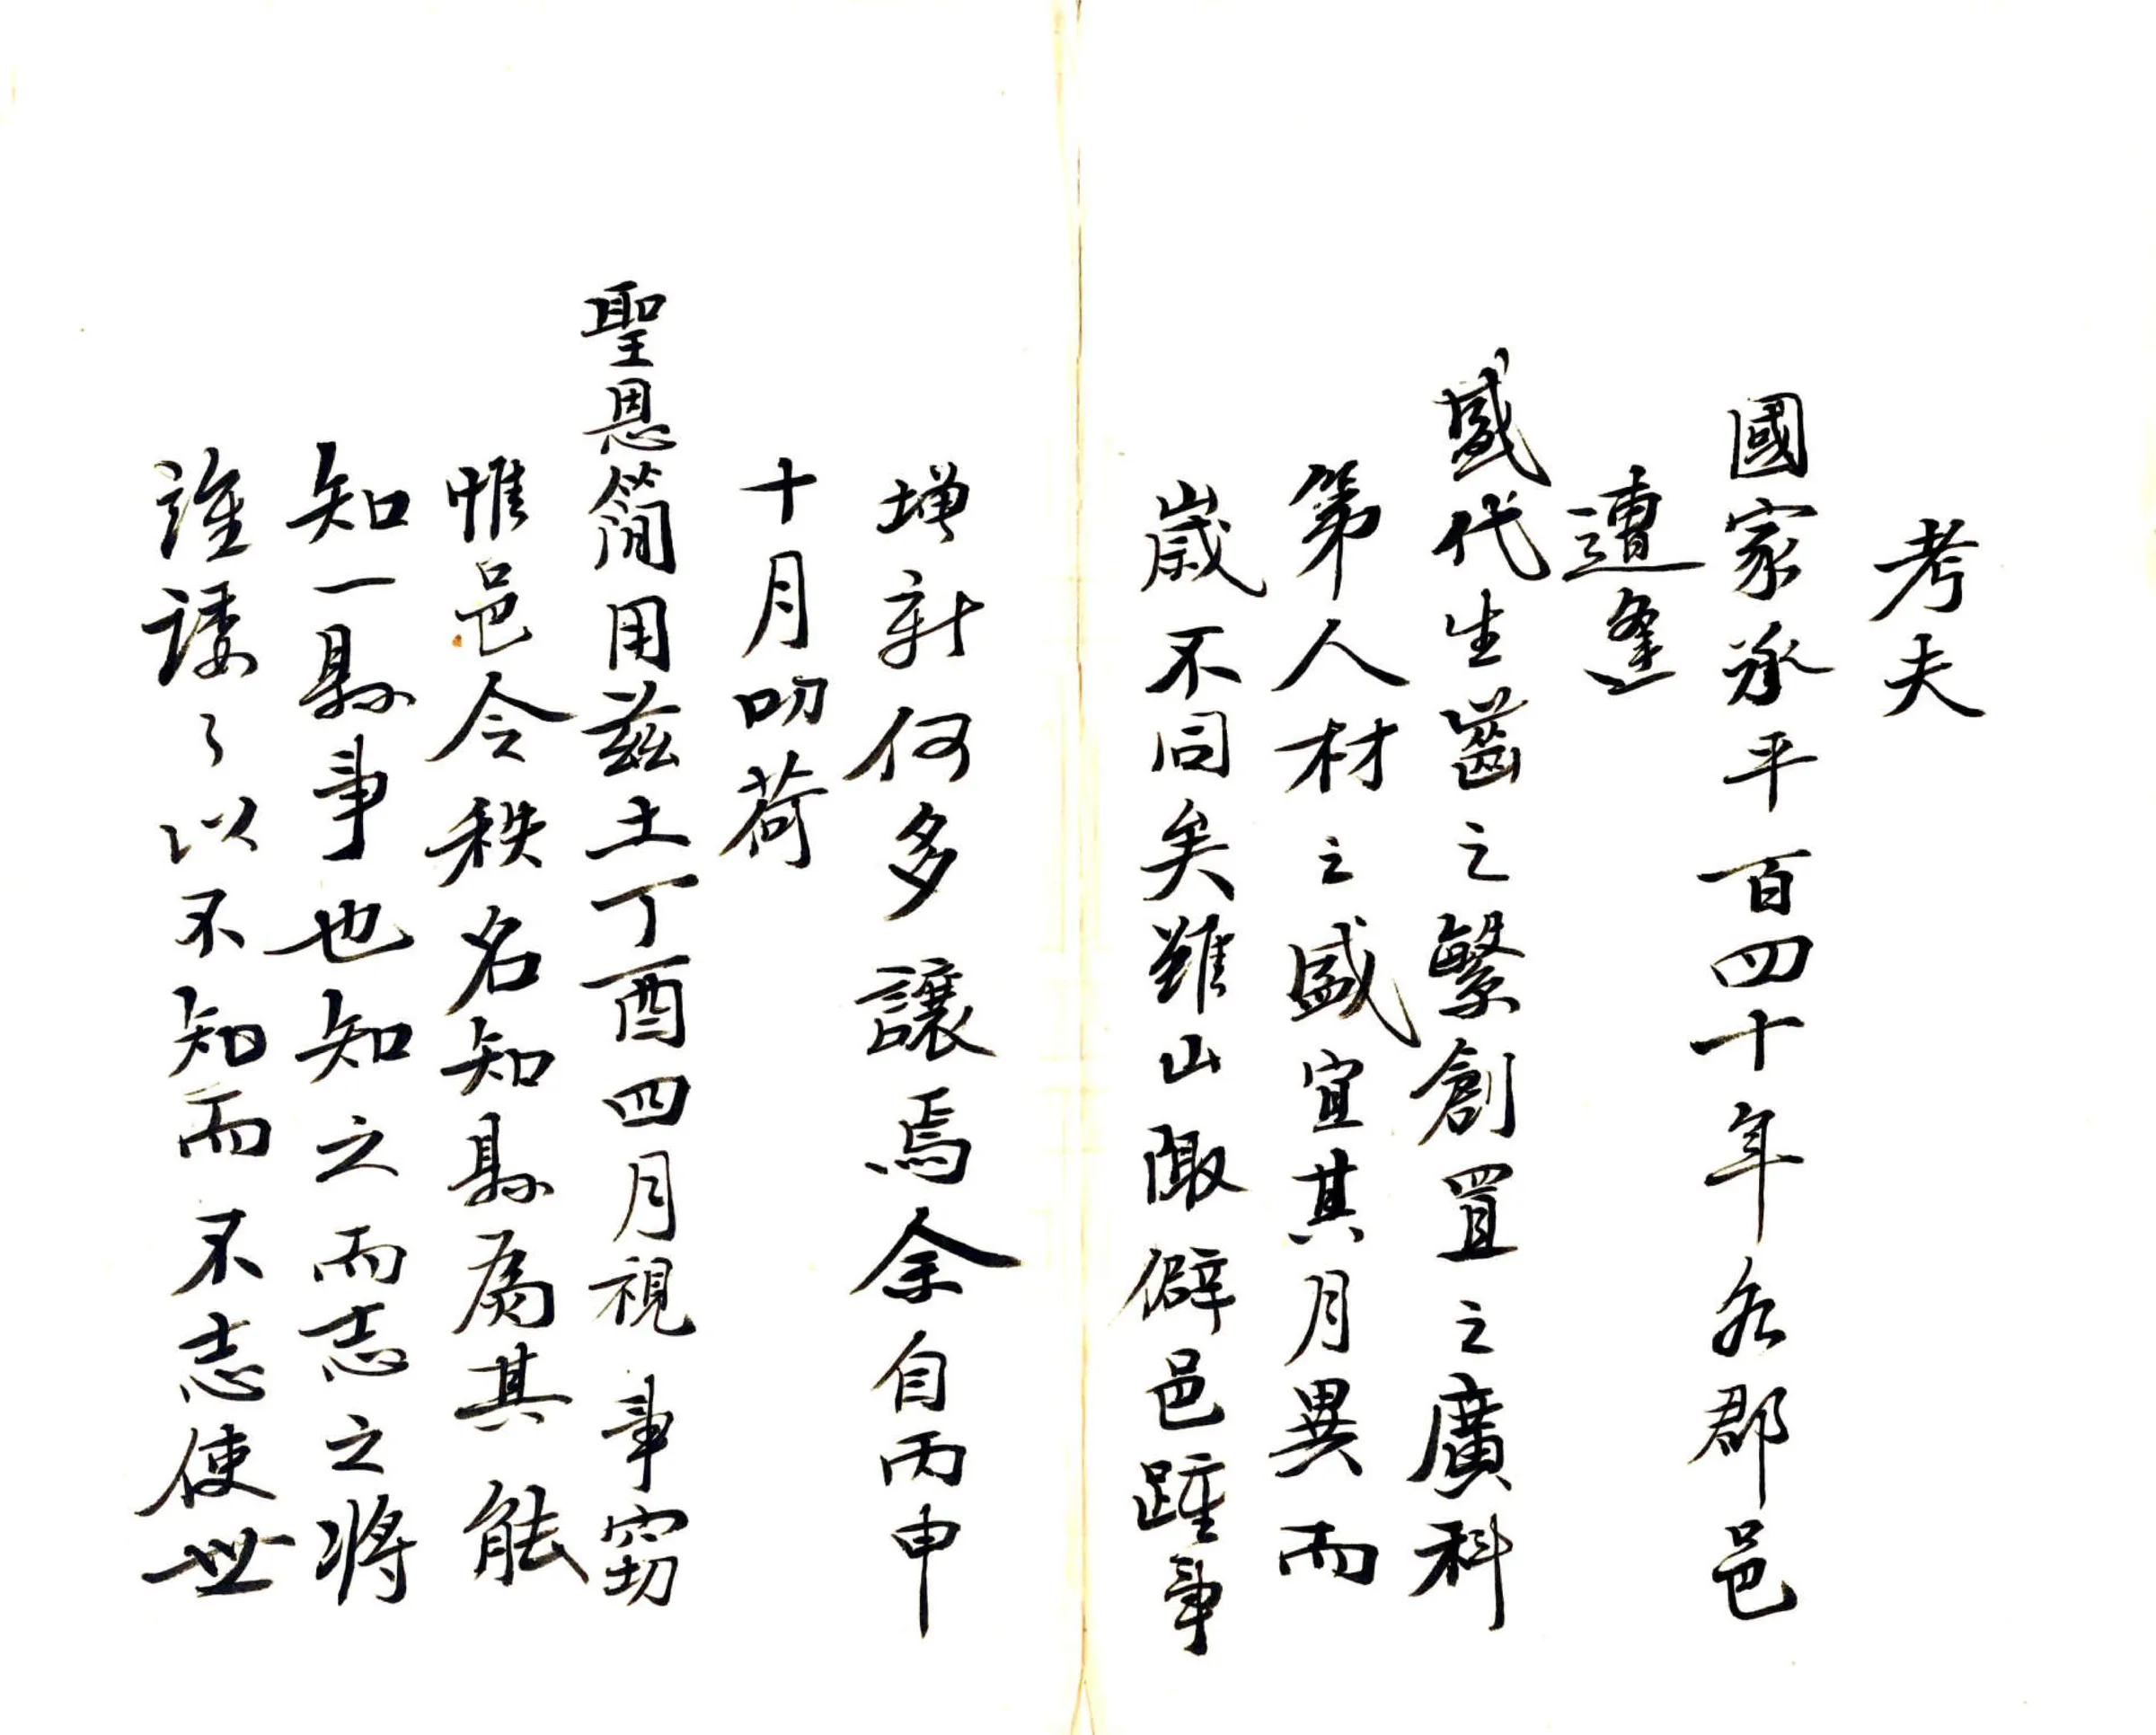 考夫
國家承平百四十年名郡邑
遭逢
盛代生齒之繁創置之廣科
第人材之盛宜其月異而
歲不同矣雖山陬僻邑踵事
增新何多讓焉余自丙申
十月叨荷
聖恩簡用茲土丁酉四月視事窃
惟邑令秩名知縣爲其能
知一縣事也知之而志之將
誰諉了以不知而不志使世